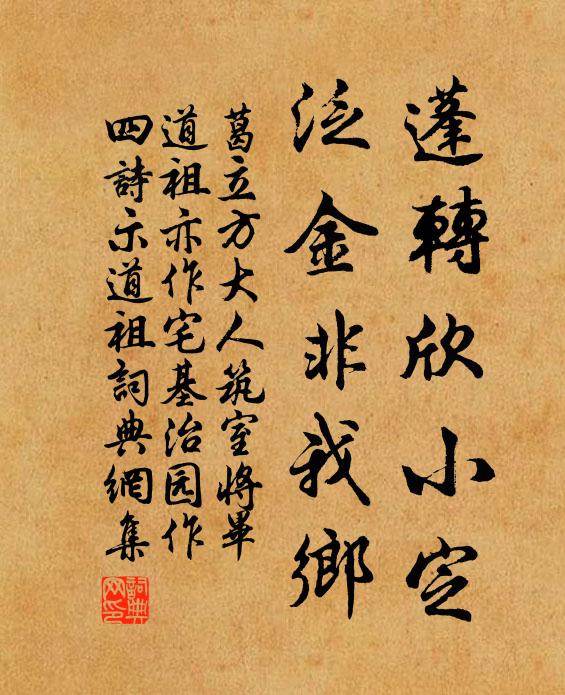 蓬轉欣小定
泛金非我鄉
葛立方大人筑室將畢
道祖亦作宅基治园作
四詩示道祖詞典網集
詞典网印